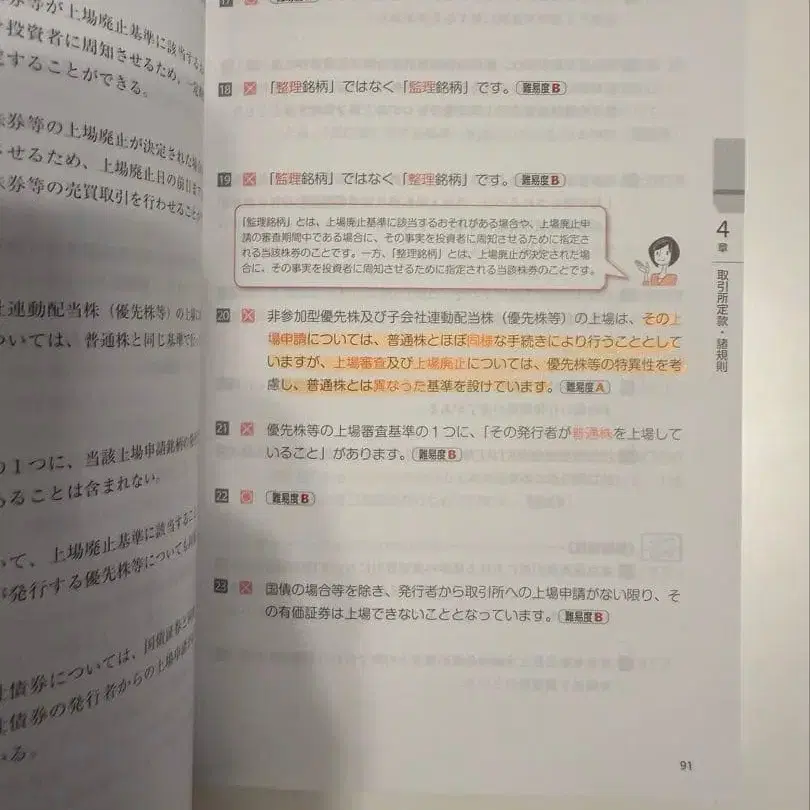 券等が上場廃止基準に該当する
投資者に周知させるため、一定
することができる。
券等の上場廃止が決定された場合
させるため、上場廃止日の前日まで
株券等の売買取引を行わせること
社連動配当株（優先株等）の上場
ついては、普通株と同じ基準で
の１つに、当該上場申請銘柄の発行
あることは含まれない。
いて、上場廃止基準に該当すること
が発行する優先株等についても
社債券については、国債証券と
社債券の発行者からの上場申請
いる。
17 難易度B
18 ☒ 「整理銘柄」ではなく「監理銘柄」です。 難易度B
19 ☒ 「監理銘柄」ではなく「整理銘柄」です。 難易度B
「監理銘柄」とは、上場廃止基準に該当するおそれがある場合や、上場廃止申
請の審査期間中である場合に、その事実を投資者に周知させるために指定さ
れる当該株券のことです。一方、「整理銘柄」とは、上場廃止が決定された場
合に、その事実を投資者に周知させるために指定される当該株券のことです。
20 ☒ 非参加型優先株及び子会社連動配当株（優先株等）の上場は、その上
場申請については、普通株とほぼ同様な手続きにより行うこととして
いますが、上場審査及び上場廃止については、優先株等の特異性を考
慮し、普通株とは異なった基準を設けています。 難易度A
21 ☒ 優先株等の上場審査基準の１つに、「その発行者が普通株を上場して
いること」があります。 難易度B
22 難易度B
23 ☒ 国債の場合等を除き、発行者から取引所への上場申請がない限り、そ
の有価証券は上場できないこととなっています。 難易度B
4
章
取引所定款・諸規則
91